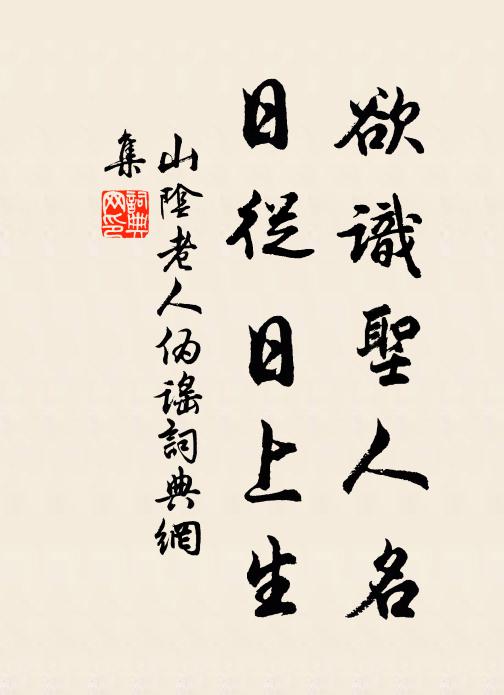 欲識聖人名
日從日上生
山陰老人偽謠詞典網
集
詞典
网印